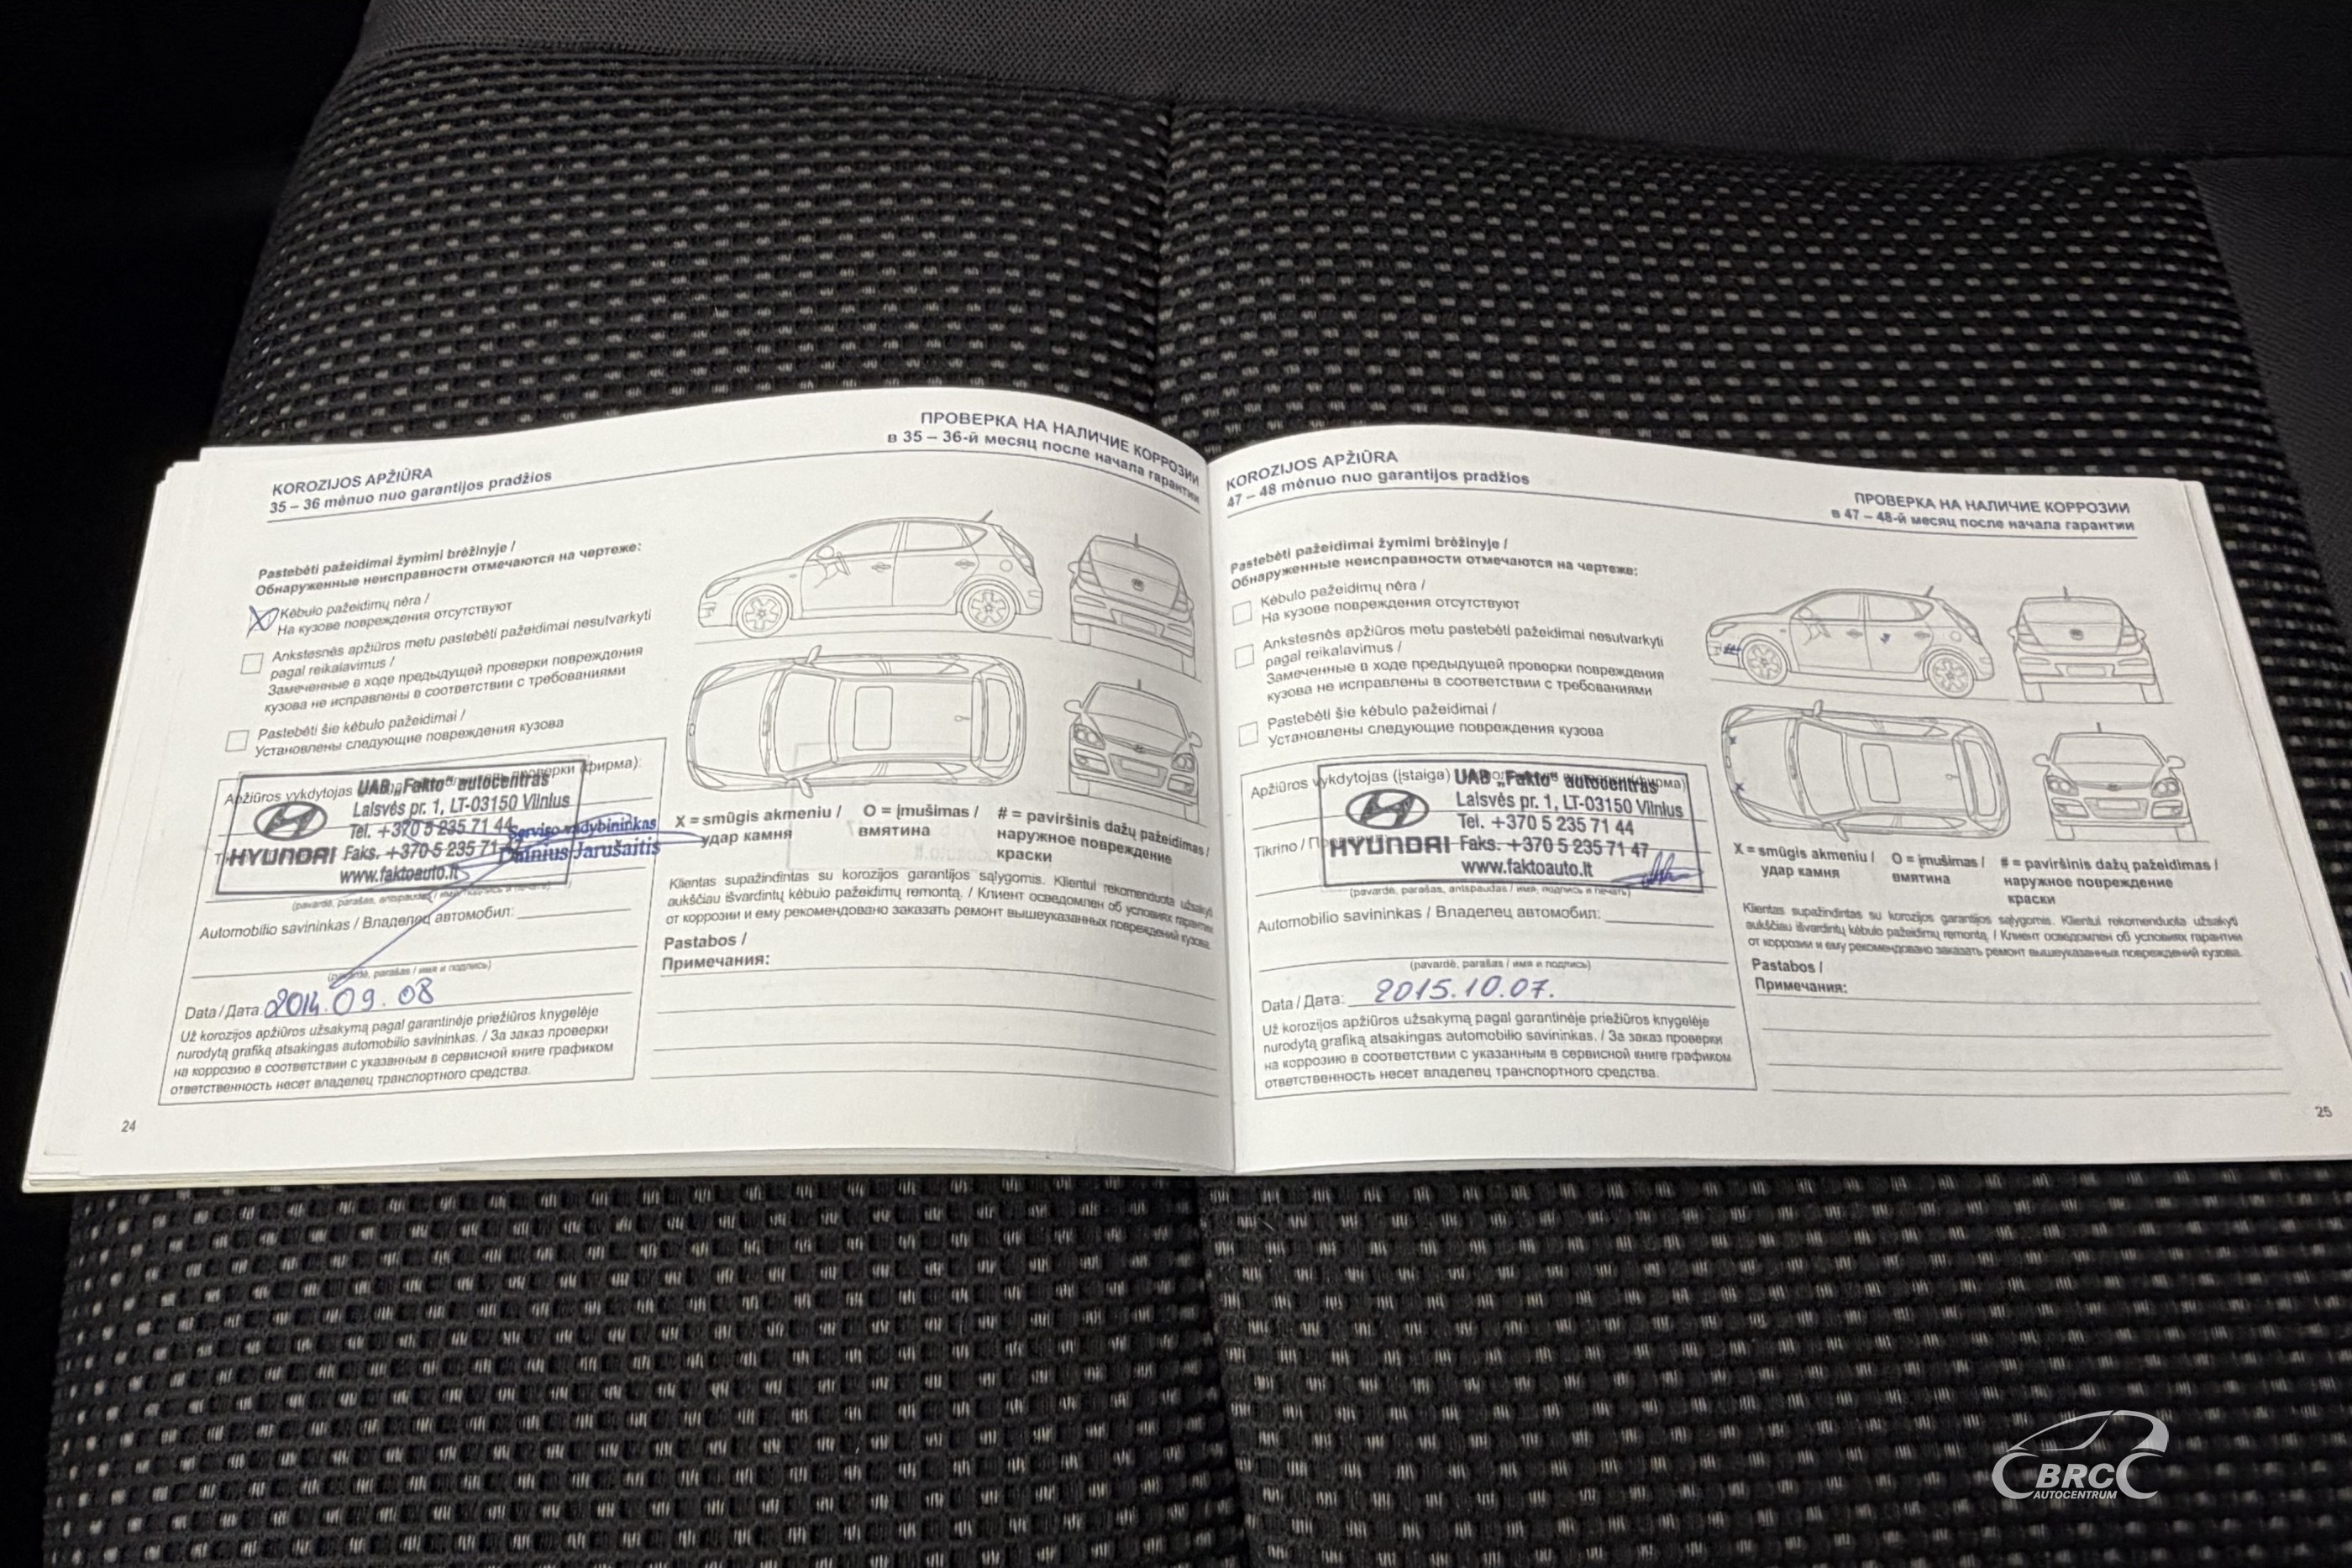 KOROZIJOS APŽIŪRA
35 – 36 mėnuo nuo garantijos pradžios
ПРОВЕРКА НА НАЛИЧИЕ КОРРОЗИИ
в 35 – 36-й месяц после начала гарантии
Pastebėti pažeidimai žymimi brėžinyje /
Обнаруженные неисправности отмечаются на чертеже:
Kėbulo pažeidimų nėra /
На кузове повреждения отсутствуют
Ankstesnės apžiūros metu pastebėti pažeidimai nesutvarkyti
pagal reikalavimus /
Замеченные в ходе предыдущей проверки повреждения
кузова не исправлены в соответствии с требованиями
Pastebėti šie kėbulo pažeidimai /
Установлены следующие повреждения кузова
Apžiūros vykdytojas проверки (фирма):
UAB „Fakto“ autocentras
Laisvės pr. 1, LT-03150 Vilnius
Tel. +370 5 235 71 44
HYUNDAI Faks. +370 5 235 71 47
www.faktoauto.lt
Serviso vadybininkas
Dainius Jarušaitis
(pavardė, parašas, antspaudas / имя, подпись и печать)
Automobilio savininkas / Владелец автомобил:
(pavardė, parašas / имя и подпись)
Data / Дата: 2014.09.08
Už korozijos apžiūros užsakymą pagal garantinėje priežiūros knygelėje
nurodytą grafiką atsakingas automobilio savininkas. / За заказ проверки
на коррозию в соответствии с указанным в сервисной книге графиком
ответственность несет владелец транспортного средства.
X = smūgis akmeniu /
удар камня
O = įmušimas /
вмятина
# = paviršinis dažų pažeidimas /
наружное повреждение
краски
Klientas supažindintas su korozijos garantijos sąlygomis. Klientui rekomenduota užsakyti
aukščiau išvardintų kėbulo pažeidimų remontą. / Клиент осведомлен об условиях гарантии
от коррозии и ему рекомендовано заказать ремонт вышеуказанных повреждений кузова.
Pastabos /
Примечания:
24
KOROZIJOS APŽIŪRA
47 – 48 mėnuo nuo garantijos pradžios
ПРОВЕРКА НА НАЛИЧИЕ КОРРОЗИИ
в 47 – 48-й месяц после начала гарантии
Pastebėti pažeidimai žymimi brėžinyje /
Обнаруженные неисправности отмечаются на чертеже:
Kėbulo pažeidimų nėra /
На кузове повреждения отсутствуют
Ankstesnės apžiūros metu pastebėti pažeidimai nesutvarkyti
pagal reikalavimus /
Замеченные в ходе предыдущей проверки повреждения
кузова не исправлены в соответствии с требованиями
Pastebėti šie kėbulo pažeidimai /
Установлены следующие повреждения кузова
Apžiūros vykdytojas (įstaiga)
UAB „Fakto“ autocentras
Laisvės pr. 1, LT-03150 Vilnius
Tel. +370 5 235 71 44
Tikrino /
HYUNDAI Faks. +370 5 235 71 47
www.faktoauto.lt
(pavardė, parašas, antspaudas / имя, подпись и печать)
Automobilio savininkas / Владелец автомобил:
(pavardė, parašas / имя и подпись)
Data / Дата: 2015.10.07.
Už korozijos apžiūros užsakymą pagal garantinėje priežiūros knygelėje
nurodytą grafiką atsakingas automobilio savininkas. / За заказ проверки
на коррозию в соответствии с указанным в сервисной книге графиком
ответственность несет владелец транспортного средства.
X = smūgis akmeniu /
удар камня
O = įmušimas /
вмятина
# = paviršinis dažų pažeidimas /
наружное повреждение
краски
Klientas supažindintas su korozijos garantijos sąlygomis. Klientui rekomenduota užsakyti
aukščiau išvardintų kėbulo pažeidimų remontą. / Клиент осведомлен об условиях гарантии
от коррозии и ему рекомендовано заказать ремонт вышеуказанных повреждений кузова.
Pastabos /
Примечания:
25
BRC
AUTOCENTRUM